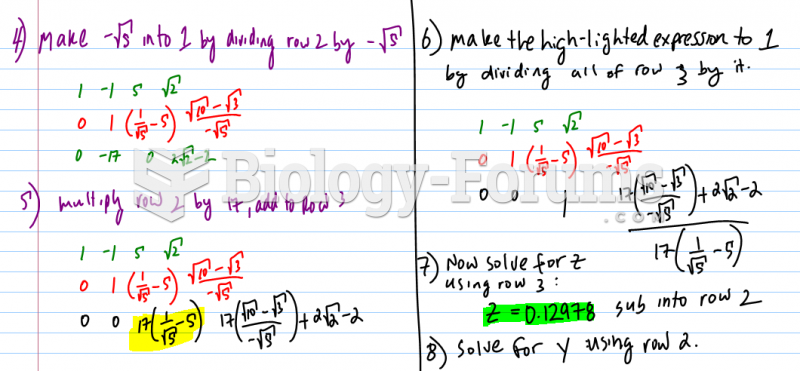 4) Make -√5 into 1 by dividing row 2 by -√5
1 -1 5 √2
0 1 (1/√5 - 5) (√10 - √3)/(-√5)
0 -17 0 2√2 - 2
5) multiply row 2 by 17, add to Row 3
1 -1 5 √2
0 1 (1/√5 - 5) (√10 - √3)/(-√5)
0 0 17(1/√5 - 5) 17((√10 - √3)/(-√5)) + 2√2 - 2
6) make the high-lighted expression to 1
by dividing all of row 3 by it.
1 -1 5 √2
0 1 (1/√5 - 5) (√10 - √3)/(-√5)
0 0 1 (17((√10 - √3)/(-√5)) + 2√2 - 2)/(17(1/√5 - 5))
7) Now solve for z
using row 3:
z = 0.12978 sub into row 2
8) solve for y using row 2.
Biology-Forums
.com